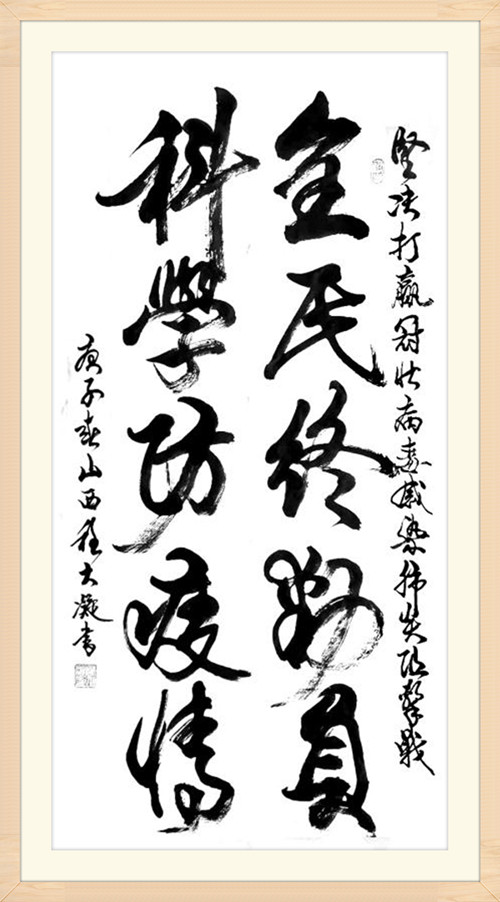 堅决打赢冠状病毒感染肺炎阻擊戰
全民終動員
科學防疫情
庚子春山西大凝書